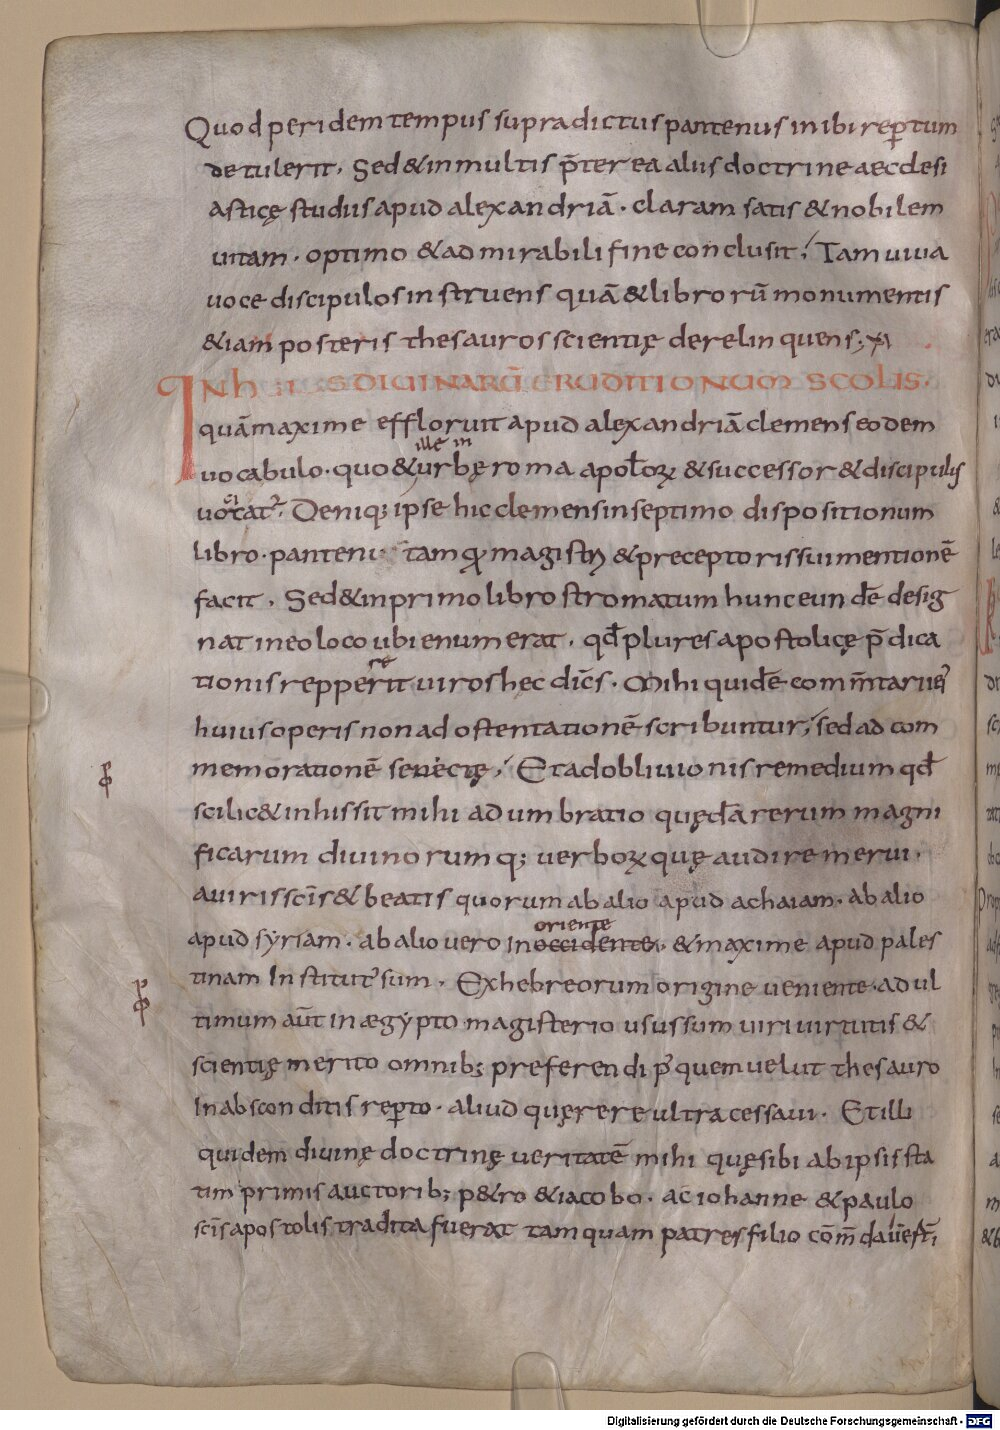 Quod peridem tempus supradictus pantenus inibi rep̄tum
detulerit. Sed &in multis p̄terea aliis doctrine aecclesi
asticę studiis apud alexandriā. claram satis & nobilem
uitam. optimo & admirabili fine conclusit; Tam uiua
uoce discipulos instruens quā & librorū monumentis
&iam posteris thesauros scientię derelinquens; xi
INh i s DIUINARŪ ERUDITIONUM SCOLIS.
quā maxime effloruit apud alexandriā clemens eodem
ille in
uocabulo. quo & urbę roma apostoloꝝ & successor & discipulis
uocat᷒. Deniq; ipse hic clemens in septimo dispositionum
libro. panteni tamqͣ magistri & preceptoris sui mentionē
facit. Sed & in primo libro stromatum hunc eundē desig
nat in eo loco ubi enumerat. qđ plures apostolicę p̄dica
re
tionis repperit uiros hec dic̄s. Mihi quidē comm̄tarii
huius operis non ad ostentationē scribuntur; sed ad com
memorationē senectę; Et ad obliuionis remedium qđ
scilic& in his sit mihi adumbratio quędā rerum magni
ficarum diuinorumq; uerboꝝ quę audire merui.
a uiris sc̄is & beatis quorum ab alio apud achaiam. ab alio
oriente
apud sẏriam. ab alio uero in occidente. & maxime apud pales
tinam Institut᷒ sum. Ex hebreorum origine ueniente. ad ul
timum aūt in ægẏpto magisterio usus sum uiri uirtutis &
scientię merito omnib; preferendi p᷒ quem uelut thesauro
In absconditis rep̄to. aliud quęrere ultra cessaui. Et illi
quidem diuinę doctrinę ueritatē mihi quę sibi ab ipsis sta
tim primis auctorib; p&ro & iacobo. ac iohanne & paulo
sc̄is apostolis tradita fuerat tamquam patres filio cōm̄daueR̄